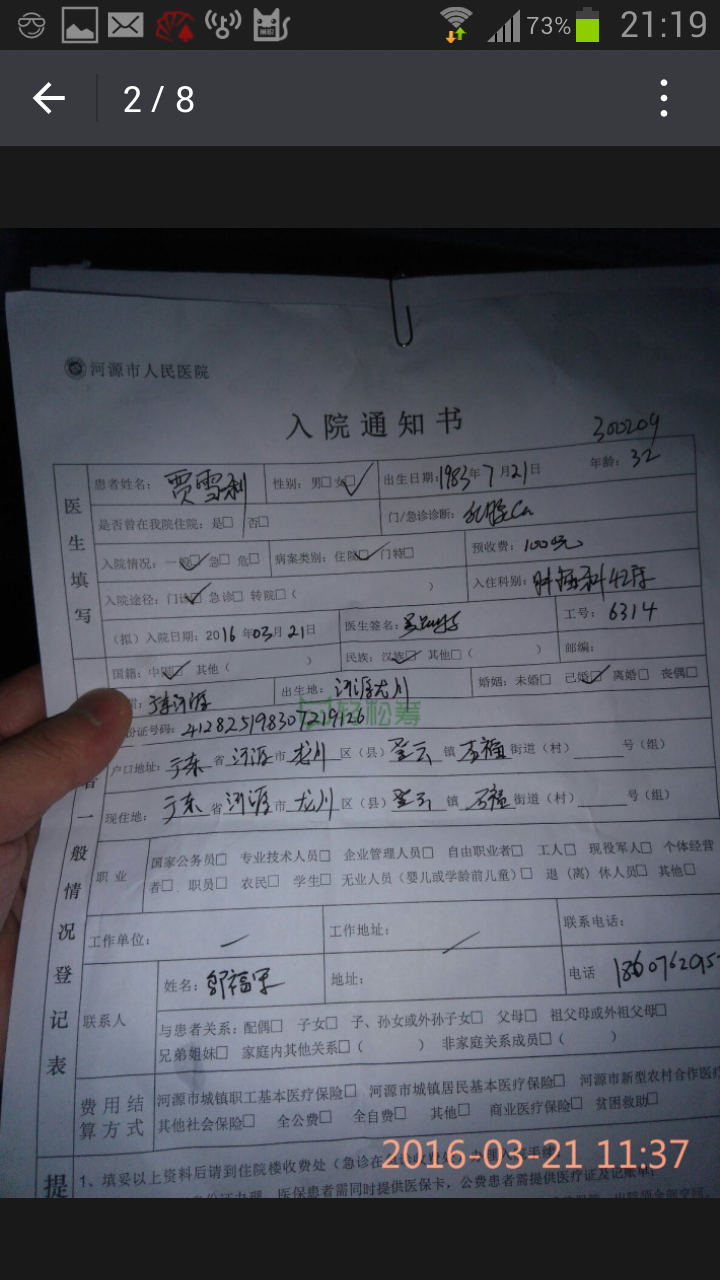 73% 21:19
2 / 8
河源市人民医院
入院通知书
300209
医生填写
患者姓名: 贾雪利 性别: 男□ 女□ 出生日期: 1983年7月21日 年龄: 32
是否曾在我院住院: 是□ 否□ 门/急诊诊断: 乳腺Ca
入院情况: 一般□ 急□ 危□ 病案类别: 住院□ 门特□ 预收费: 100元
入院途径: 门诊□ 急诊□ 转院□ ( ) 入住科别: 肿瘤科42床
(拟) 入院日期: 2016年03月21日 医生签名: 工号: 6314
国籍: 中国□ 其他 ( ) 民族: 汉族□ 其他□ ( ) 邮编:
河源 出生地: 河源龙川 婚姻: 未婚□ 已婚□ 离婚□ 丧偶□
轻松筹
份证号码: 412825198307219126
户口地址: 广东省河源市龙川区(县)登云镇万福街道(村) 号(组)
现住地: 广东省河源市龙川区(县)登云镇万福街道(村) 号(组)
者一般情况登记表
职业 国家公务员□ 专业技术人员□ 企业管理人员□ 自由职业者□ 工人□ 现役军人□ 个体经营
者□、职员□ 农民□ 学生□ 无业人员(婴儿或学龄前儿童)□ 退(离)休人员□ 其他□
工作单位: 工作地址: 联系电话:
联系人 姓名: 邹福军 地址: 电话 1860762095
与患者关系: 配偶□ 子女□ 子、孙女或外孙子女□ 父母□ 祖父母或外祖父母□
兄弟姐妹□ 家庭内其他关系□ ( ) 非家庭关系成员□ ( )
费用结算方式 河源市城镇职工基本医疗保险□ 河源市城镇居民基本医疗保险□ 河源市新型农村合作医疗
其他社会保险□ 全公费□ 全自费□ 其他□ 商业医疗保险□ 贫困救助□
提
1、填妥以上资料后请到住院楼收费处(急诊在
2016-03-21 11:37
医保患者需同时提供医保卡, 公费患者需提供医疗证及记账单